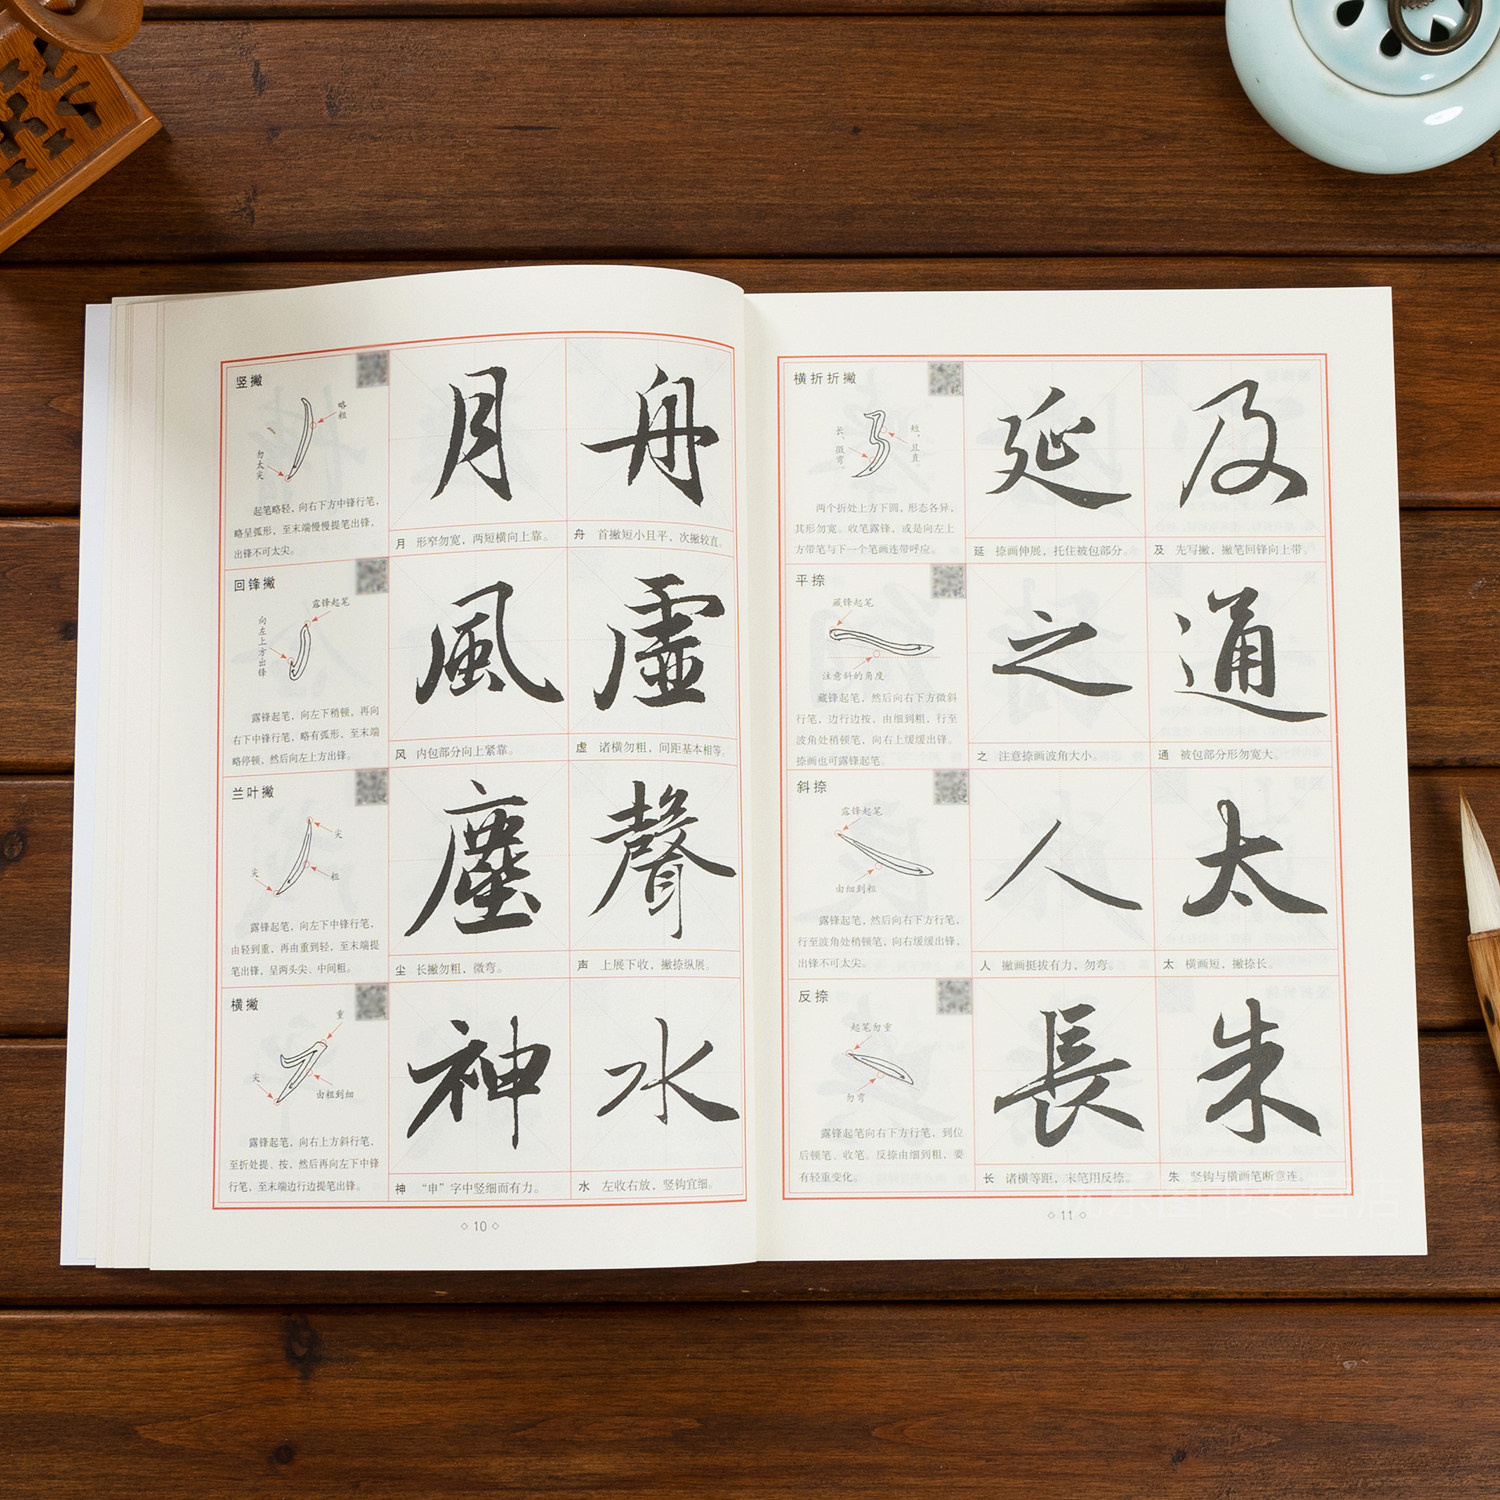 竖撇
略粗
勿太尖
起笔略轻，向右下方中锋行笔，
略呈弧形，至末端慢慢提笔出锋，
出锋不可太尖。
月
月 形窄勿宽，两短横向上靠。
舟
舟 首撇短小且平，次撇较直。
回锋撇
露锋起笔
向左上方出锋
露锋起笔，向左下稍顿，再向
右下中锋行笔，略有弧形，至末端
略停顿，然后向左上方出锋。
風
风 内包部分向上紧靠。
虛
虚 诸横勿粗，间距基本相等。
兰叶撇
尖
尖
粗
露锋起笔，向左下中锋行笔，
由轻到重，再由重到轻，至末端提
笔出锋，呈两头尖、中间粗。
塵
尘 长撇勿粗，微弯。
聲
声 上展下收，撇捺纵展。
横撇
重
尖
由粗到细
露锋起笔，向右上方斜行笔，
至折处提、按，然后再向左下中锋
行笔，至末端边行边提笔出锋。
神
神 “申”字中竖细而有力。
水
水 左收右放，竖钩宜细。
◇ 10 ◇
横折折撇
长、微弯。
短，且直。
两个折处上方下圆，形态各异，
其形勿宽。收笔露锋，或是向左上
方带笔与下一个笔画连带呼应。
延
延 捺画伸展，托住被包部分。
及
及 先写撇，撇笔回锋向上带。
平捺
藏锋起笔
注意斜的角度
藏锋起笔，然后向右下方微斜
行笔，边行边按，由细到粗，行至
波角处稍顿笔，向右上缓缓出锋。
捺画也可露锋起笔。
之
之 注意捺画波角大小。
通
通 被包部分形勿宽大。
斜捺
露锋起笔
由细到粗
露锋起笔，然后向右下方行笔，
行至波角处稍顿笔，向右缓缓出锋，
出锋不可太尖。
人
人 撇画挺拔有力，勿弯。
太
太 横画短，撇捺长。
反捺
起笔勿重
勿弯
露锋起笔向右下方行笔，到位
后顿笔、收笔。反捺由细到粗，要
有轻重变化。
長
长 诸横等距，末笔用反捺。
朱
朱 竖钩与横画笔断意连。
◇ 11 ◇